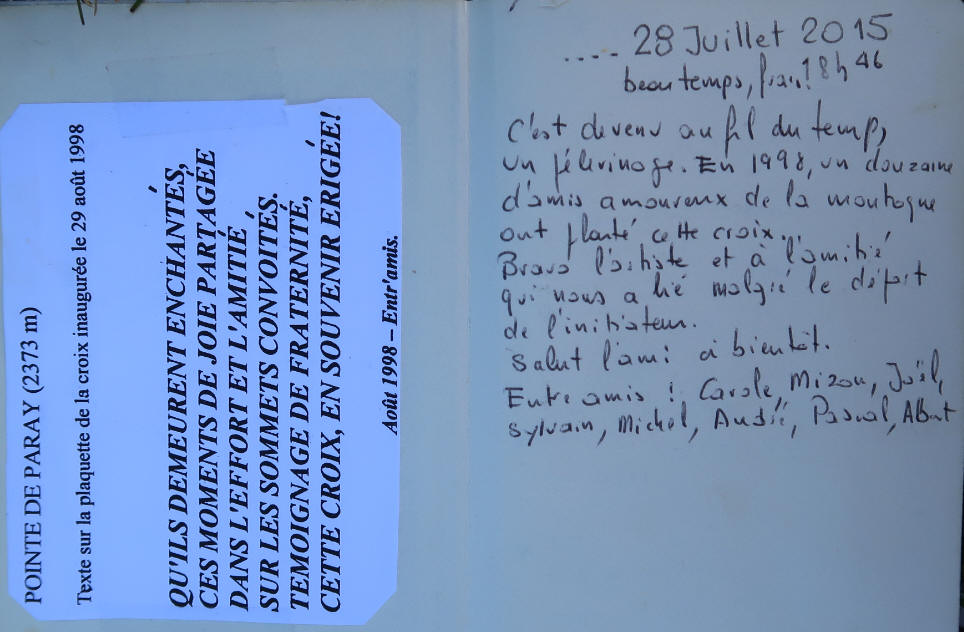 POINTE DE PARAY (2373 m)
Texte sur la plaquette de la croix inaugurée le 29 août 1998
QU'ILS DEMEURENT ENCHANTÉS,
CES MOMENTS DE JOIE PARTAGÉE
DANS L'EFFORT ET L'AMITIÉ
SUR LES SOMMETS CONVOITÉS.
TEMOIGNAGE DE FRATERNITÉ,
CETTE CROIX, EN SOUVENIR ERIGÉE!
Août 1998 – Entr'amis.
.... 28 Juillet 2015
beau temps, frais! 18h46
C'est devenu au fil du temp,
un pélerinage. En 1998, un douzaine
d'amis amoureux de la montagne
ont planté cette croix.
Bravo l'artiste et à l'amitié
qui nous a lié malgré le départ
de l'initiateur.
Salut l'ami à bientôt.
Entre amis ! Carole, Mizou, Joël,
Sylvain, Michel, André, Pascal, Albert